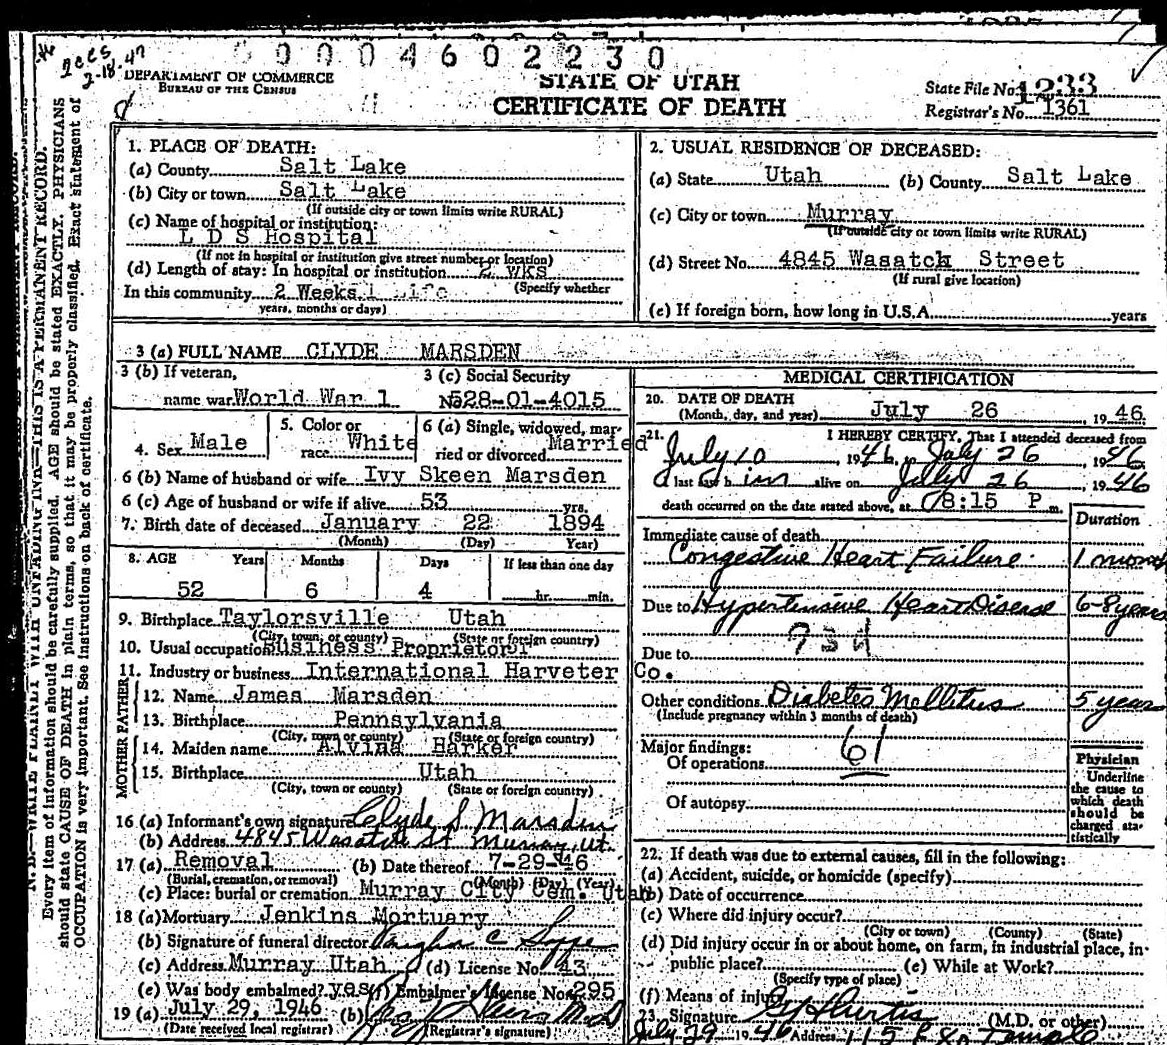 Rees
2-18-47
0 0 0 4 6 0 2 2 3 0
DEPARTMENT OF COMMERCE
BUREAU OF THE CENSUS
STATE OF UTAH
CERTIFICATE OF DEATH
State File No. 1233
Registrar's No. 1361
WRITE PLAINLY WITH UNFADING INK—THIS IS A PERMANENT RECORD.
Every item of information should be carefully supplied. AGE should be stated EXACTLY. PHYSICIANS
should state CAUSE OF DEATH in plain terms, so that it may be properly classified. Exact statement of
OCCUPATION is very important. See instructions on back of certificate.
1. PLACE OF DEATH:
(a) County Salt Lake
(b) City or town Salt Lake
(If outside city or town limits write RURAL)
(c) Name of hospital or institution:
L D S Hospital
(If not in hospital or institution give street number or location)
(d) Length of stay: In hospital or institution 2 wks
(Specify whether
In this community 2 Weeks Life
years, months or days)
2. USUAL RESIDENCE OF DECEASED:
(a) State Utah (b) County Salt Lake
(c) City or town Murray
(If outside city or town limits write RURAL)
(d) Street No. 4845 Wasatch Street
(If rural give location)
(e) If foreign born, how long in U.S.A. years
3 (a) FULL NAME CLYDE MARSDEN
3 (b) If veteran,
name war World War 1
3 (c) Social Security
No. 528-01-4015
4. Sex Male
5. Color or
race White
6 (a) Single, widowed, mar-
ried or divorced Married
6 (b) Name of husband or wife Ivy Skeen Marsden
6 (c) Age of husband or wife if alive 53 yrs.
7. Birth date of deceased January 22 1894
(Month) (Day) Year)
8. AGE Years Months Days If less than one day
52 6 4 hr. min.
9. Birthplace Taylorsville Utah
(City, town, or county) (State or foreign country)
10. Usual occupation Business Proprietor
11. Industry or business International Harveter Co.
FATHER
12. Name James Marsden
13. Birthplace Pennsylvania
(City, town or county) (State or foreign country)
MOTHER
14. Maiden name Alvina Harker
15. Birthplace Utah
(City, town or county) (State or foreign country)
16 (a) Informant's own signature Clyde S Marsden
(b) Address 4845 Wasatch St Murray, Ut.
17 (a) Removal (b) Date thereof 7-29-46
(Burial, cremation, or removal) (Month) (Day) (Year)
(c) Place: burial or cremation Murray City Cem. Utah
18 (a) Mortuary Jenkins Mortuary
(b) Signature of funeral director
(c) Address Murray Utah (d) License No. 43
(e) Was body embalmed? yes (f) Embalmer's License No. 295
19 (a) July 29, 1946 (b)
(Date received local registrar) (Registrar's signature)
MEDICAL CERTIFICATION
20. DATE OF DEATH
(Month, day, and year) July 26 1946
21. I HEREBY CERTIFY, That I attended deceased from
July 10, 1946 July 26, 1946
I last saw h im alive on July 26, 1946
death occurred on the date stated above, at 8:15 P m.
Duration
Immediate cause of death
Congestive Heart Failure 1 month
Due to Hypertensive Heart Disease 6-8 years
Due to
Other conditions Diabetes Mellitus 5 year
(Include pregnancy within 3 months of death)
61
Major findings:
Of operations
Of autopsy
Physician
Underline
the cause to
which death
should be
charged sta-
tistically
22. If death was due to external causes, fill in the following:
(a) Accident, suicide, or homicide (specify)
(b) Date of occurrence
(c) Where did injury occur?
(City or town) (County) (State)
(d) Did injury occur in or about home, on farm, in industrial place, in
public place? (e) While at Work?
(Specify type of place)
(f) Means of injury
23. Signature (M.D. or other)
July 29 1946 Address 115 E So Temple